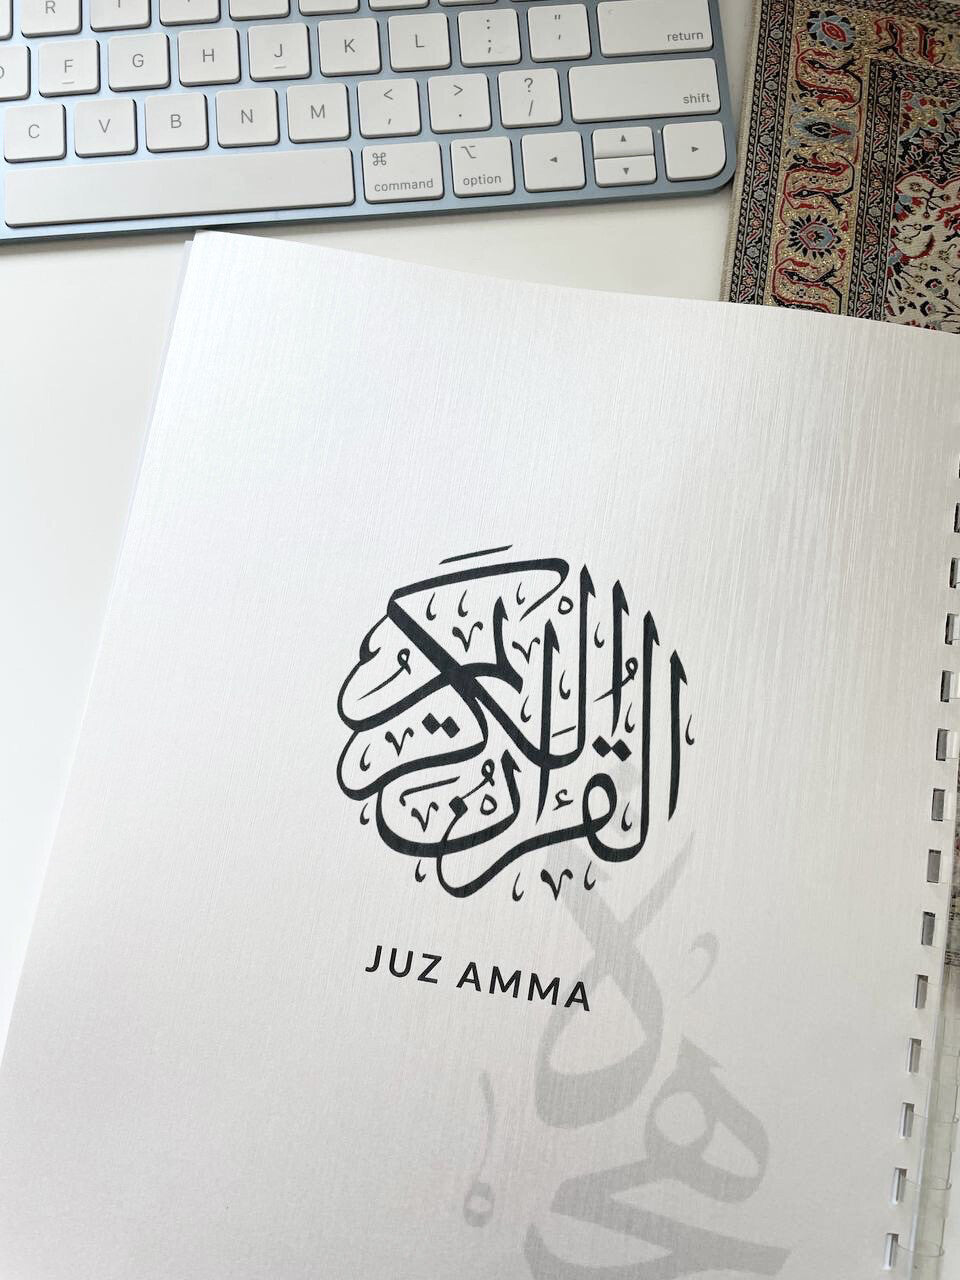 R
F G H J K L : ; " ' return
C V B N M < , > . ? / shift
⌘ command ⌥ option ◂ ▴ ▾ ▸
القرآن الكريم
JUZ AMMA